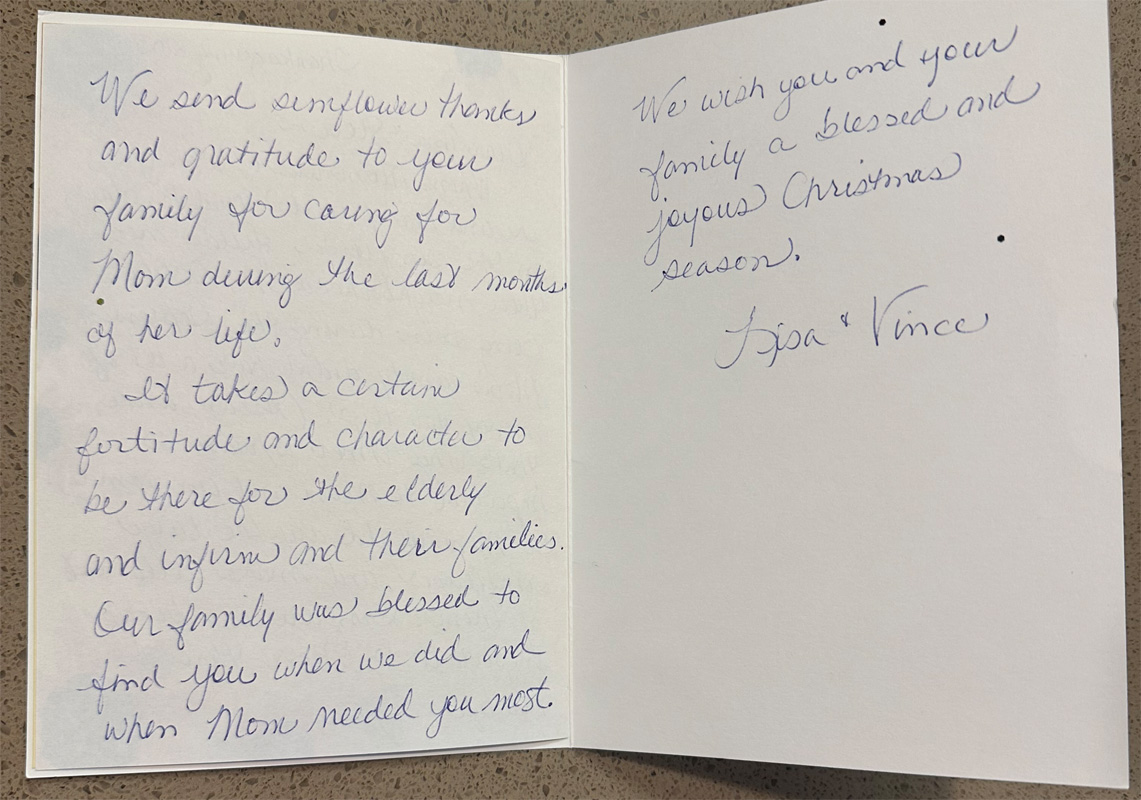 We send sunflower thanks
and gratitude to your
family for caring for
Mom during the last months
of her life.
It takes a certain
fortitude and character to
be there for the elderly
and infirm and their families.
Our family was blessed to
find you when we did and
when Mom needed you most.
We wish you and your
family a blessed and
joyous Christmas
season.
Lisa & Vince